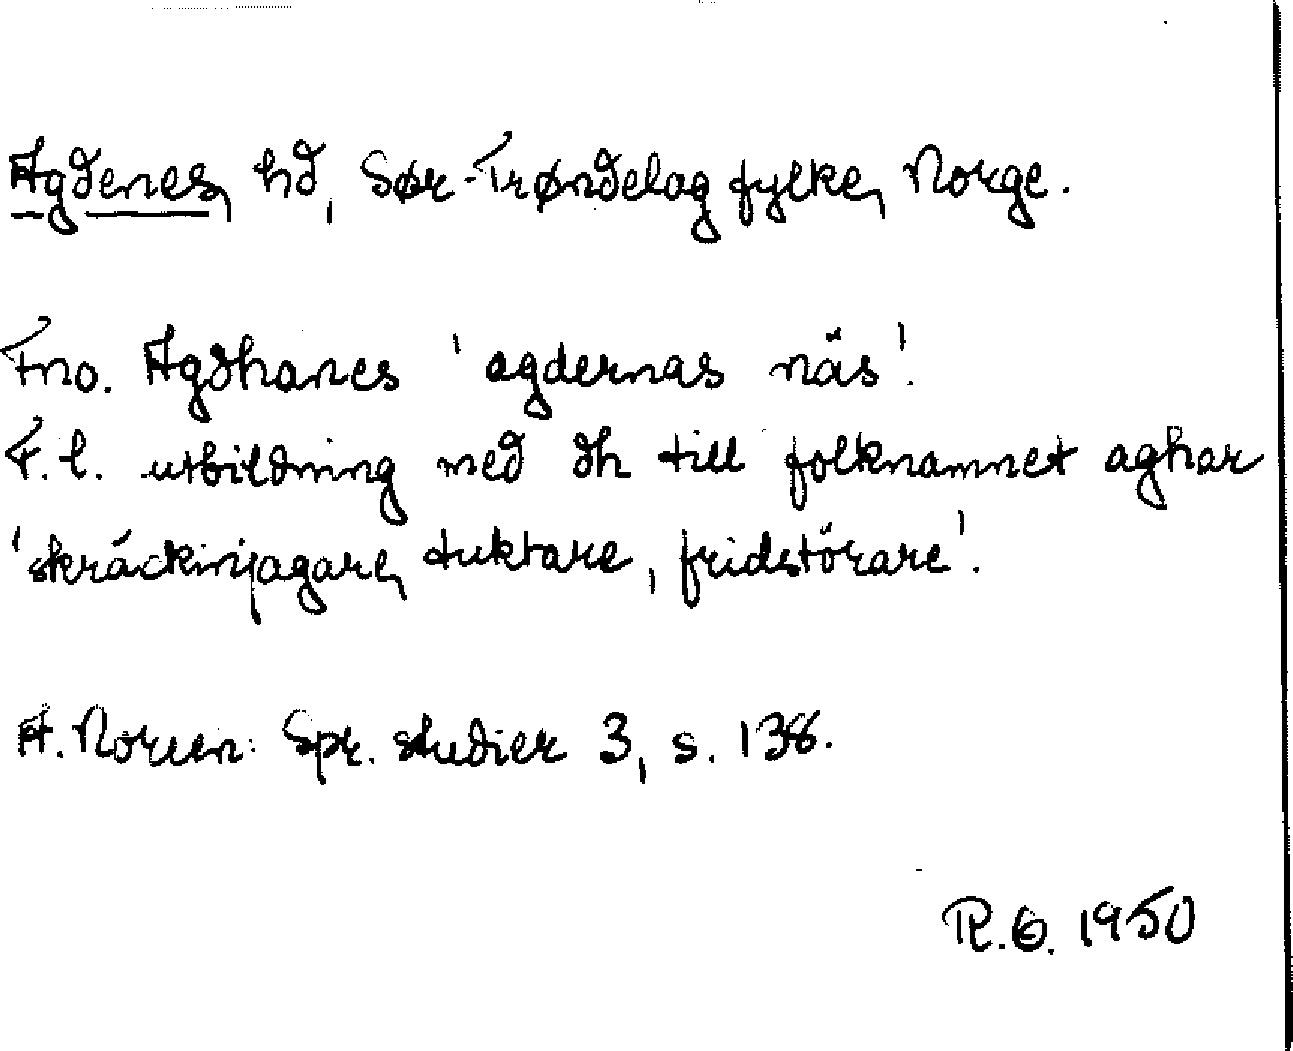 Agdenes, hd, Sør-Trøndelag fylke, Norge.
Fno. Agdhanes 'agdernas näs'.
F.l. utbildning med dh till folknamnet aghar
'skräckinjagare, tuktare, fridstörare'.
A. Noreen: Spr. studier 3, s. 138.
R.G. 1950